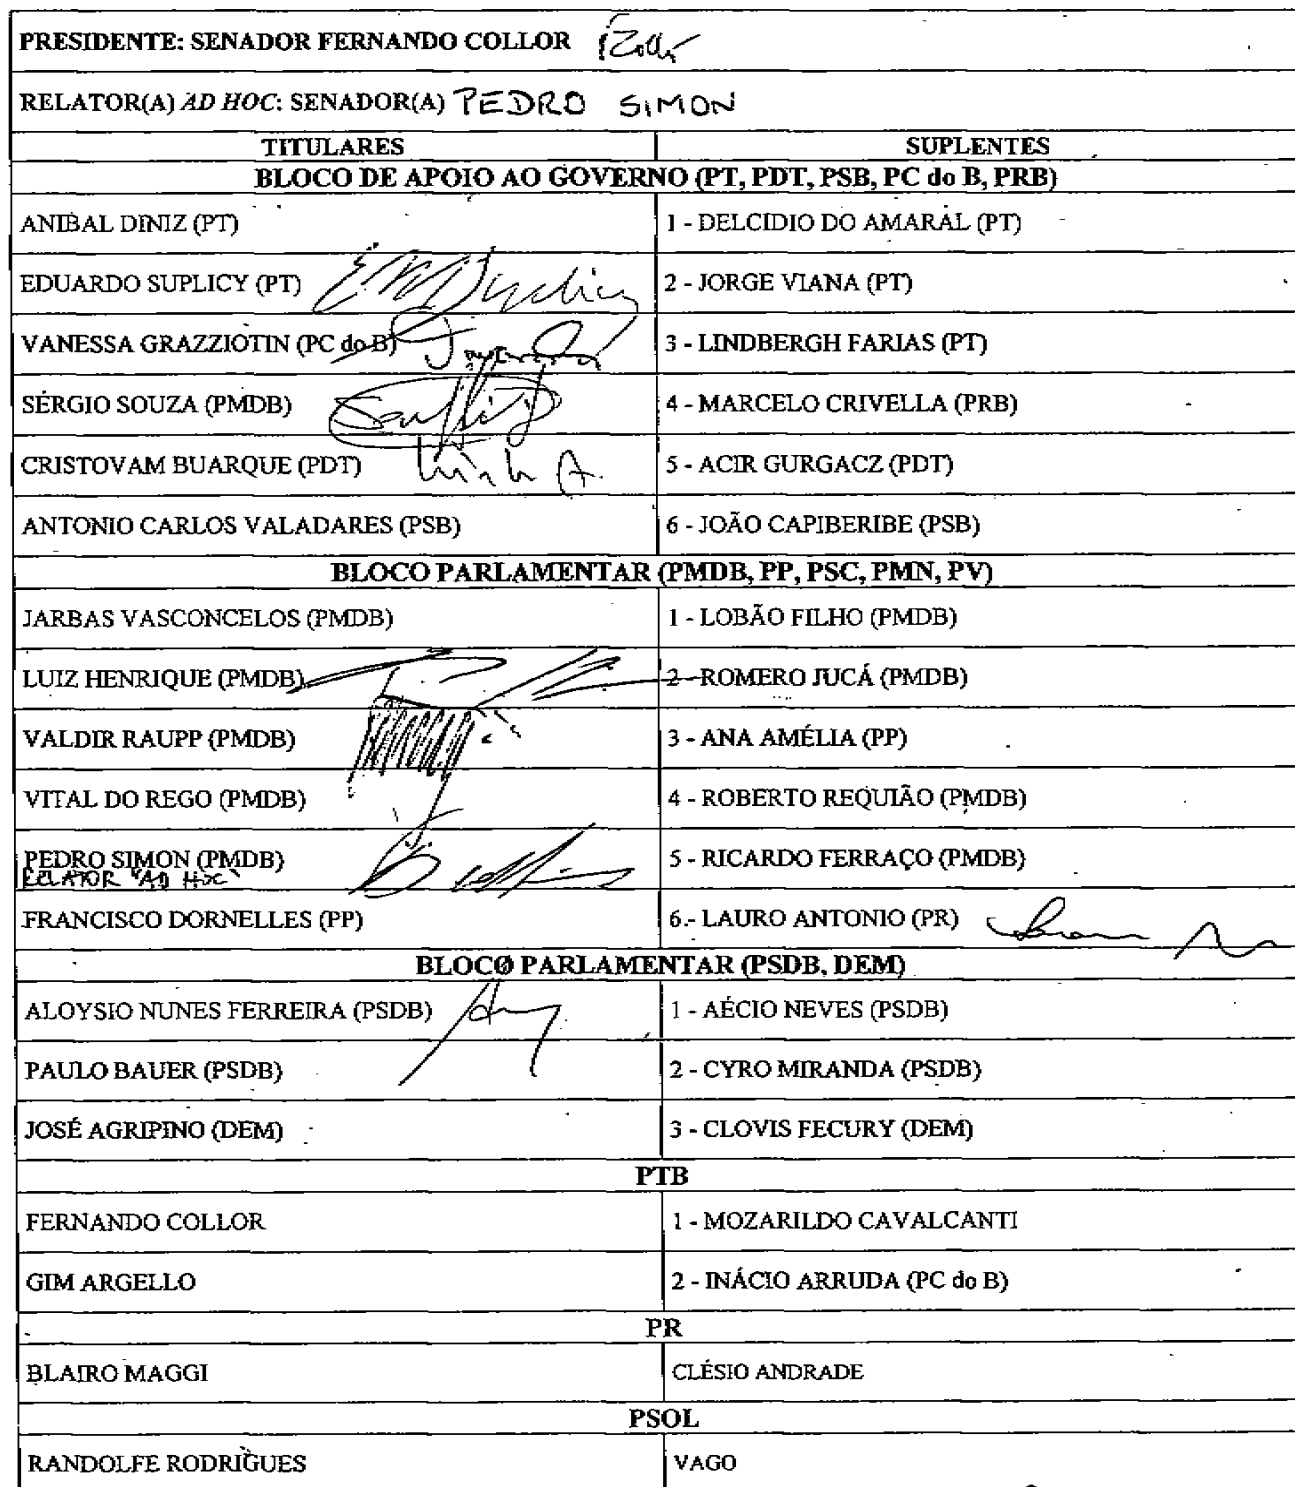 PRESIDENTE: SENADOR FERNANDO COLLOR
RELATOR(A) AD HOC: SENADOR(A) PEDRO SIMON
TITULARES SUPLENTES
BLOCO DE APOIO AO GOVERNO (PT, PDT, PSB, PC do B, PRB)
ANIBAL DINIZ (PT) 1 - DELCIDIO DO AMARAL (PT)
EDUARDO SUPLICY (PT) 2 - JORGE VIANA (PT)
VANESSA GRAZZIOTIN (PC do B) 3 - LINDBERGH FARIAS (PT)
SÉRGIO SOUZA (PMDB) 4 - MARCELO CRIVELLA (PRB)
CRISTOVAM BUARQUE (PDT) 5 - ACIR GURGACZ (PDT)
ANTONIO CARLOS VALADARES (PSB) 6 - JOÃO CAPIBERIBE (PSB)
BLOCO PARLAMENTAR (PMDB, PP, PSC, PMN, PV)
JARBAS VASCONCELOS (PMDB) 1 - LOBÃO FILHO (PMDB)
LUIZ HENRIQUE (PMDB) 2 - ROMERO JUCÁ (PMDB)
VALDIR RAUPP (PMDB) 3 - ANA AMÉLIA (PP)
VITAL DO REGO (PMDB) 4 - ROBERTO REQUIÃO (PMDB)
PEDRO SIMON (PMDB) 5 - RICARDO FERRAÇO (PMDB)
"AD HOC"
FRANCISCO DORNELLES (PP) 6 - LAURO ANTONIO (PR)
BLOCO PARLAMENTAR (PSDB, DEM)
ALOYSIO NUNES FERREIRA (PSDB) 1 - AÉCIO NEVES (PSDB)
PAULO BAUER (PSDB) 2 - CYRO MIRANDA (PSDB)
JOSÉ AGRIPINO (DEM) 3 - CLOVIS FECURY (DEM)
PTB
FERNANDO COLLOR 1 - MOZARILDO CAVALCANTI
GIM ARGELLO 2 - INÁCIO ARRUDA (PC do B)
PR
BLAIRO MAGGI CLÉSIO ANDRADE
PSOL
RANDOLFE RODRIGUES VAGO